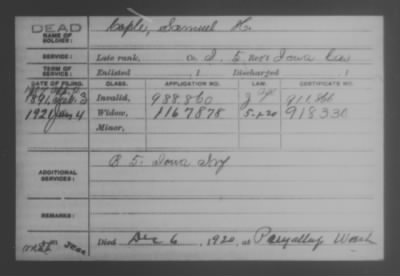 DEAD
NAME OF SOLDIER: Caple, Samuel H.
SERVICE: Late rank, Co. I, 5 Iowa Cav
TERM OF SERVICE: Enlisted , 1 Discharged , 1
DATE OF FILING. CLASS. APPLICATION NO. LAW. CERTIFICATE NO.
1891 3 Invalid, 988.860
1921 Jany 4 Widow, 1167878 5-1-20 918330
Minor,
ADDITIONAL SERVICES: B 5. Iowa Inf
REMARKS:
Died Dec 6, 1920, at Puyallup Wash